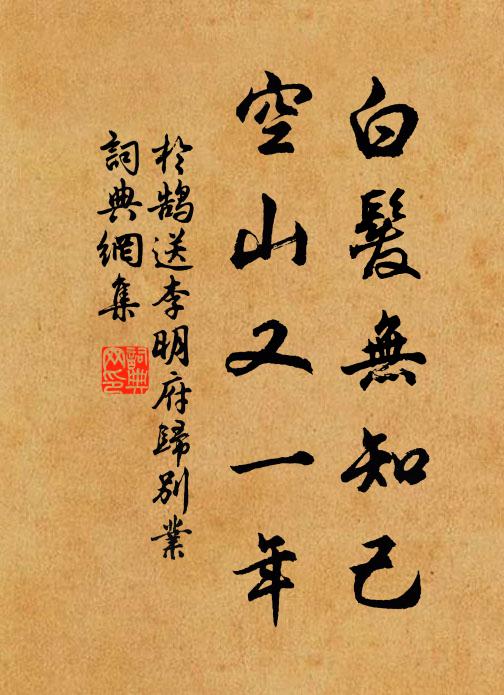 白髮無知己
空山又一年
於鵠送李明府歸別業
詞典網集
詞典
网印